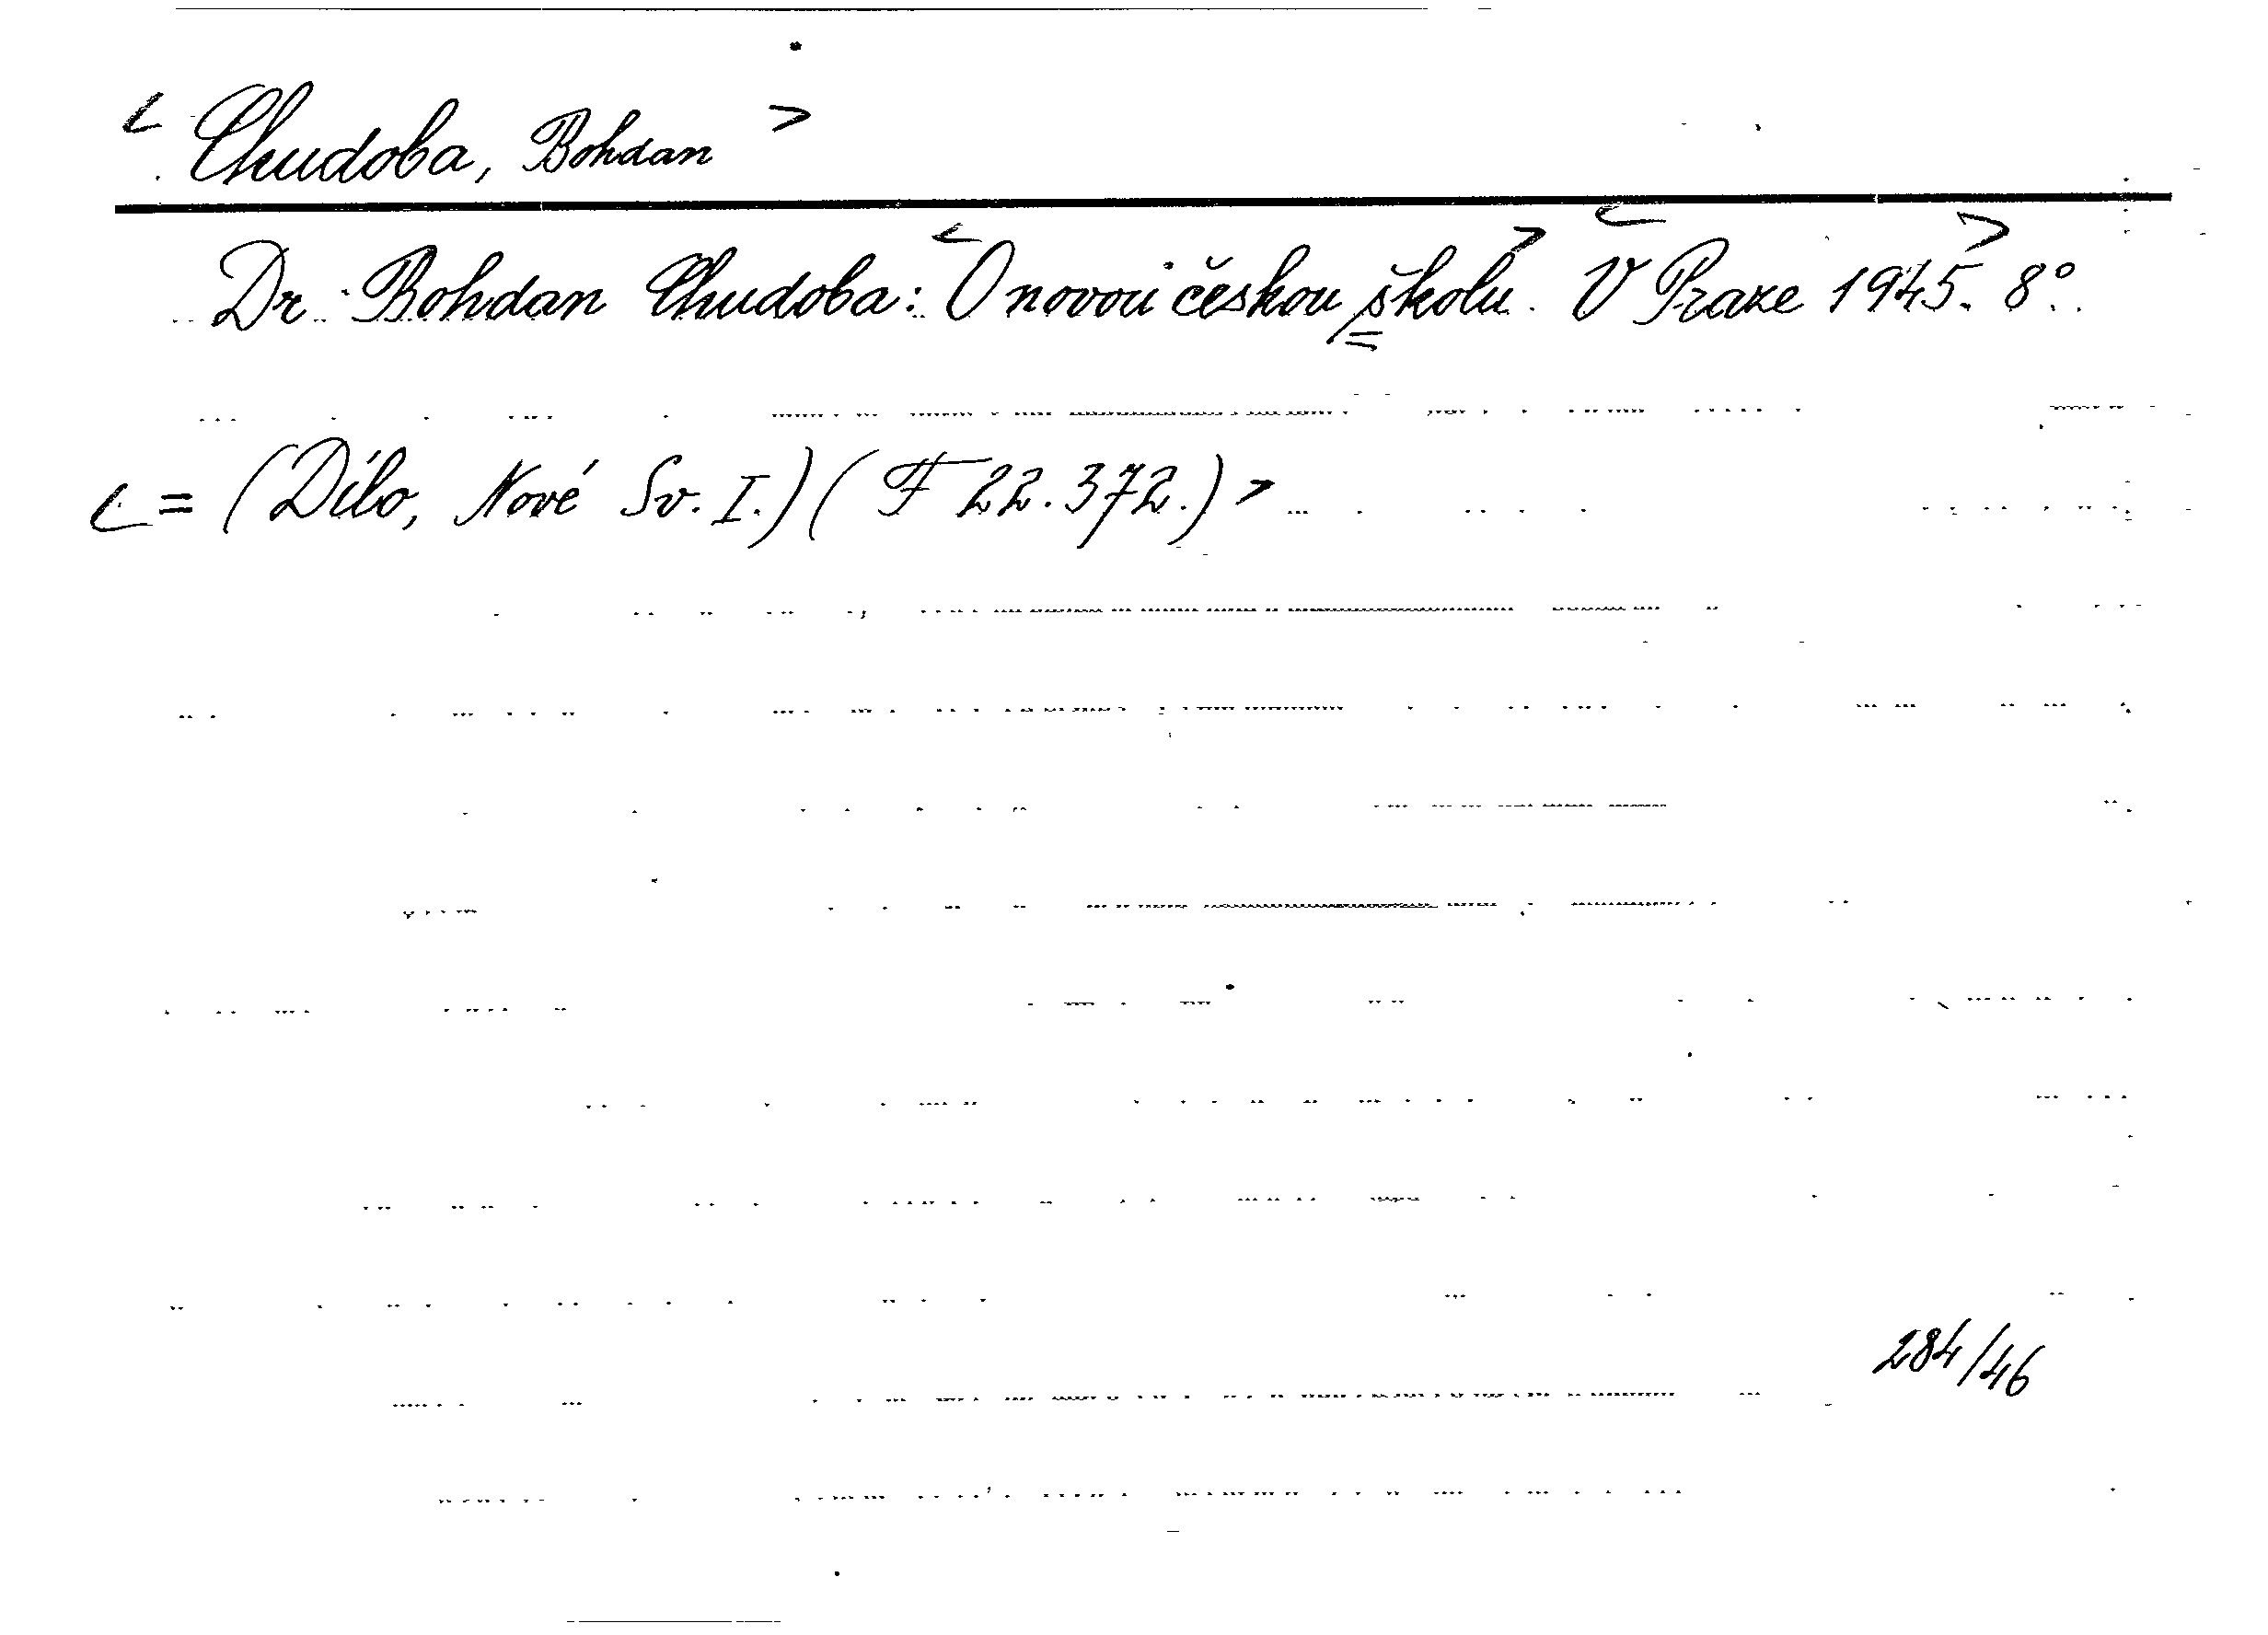 < Chudoba, Bohdan >
Dr. Bohdan Chudoba: <O novou českou školu>. <V Praze 1945>. 8°.
< = (Dílo, Nové Sv. I.) (F 22.372.) >
284/46